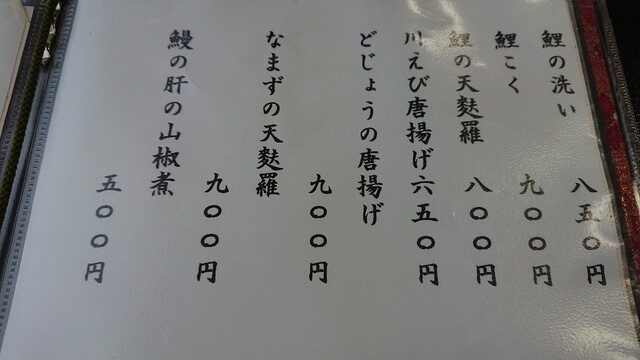 鯉の洗い 八五〇円
鯉こく 九〇〇円
鯉の天麩羅 八〇〇円
川えび唐揚げ 六五〇円
どじょうの唐揚げ
九〇〇円
なまずの天麩羅
九〇〇円
鰻の肝の山椒煮
五〇〇円